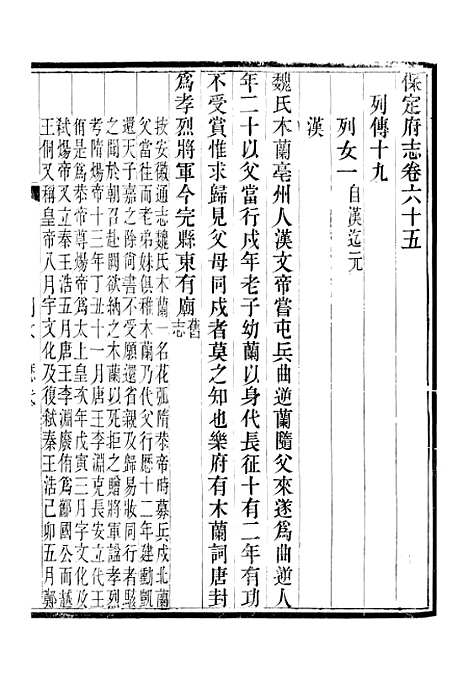 保定府志卷六十五
列傳十九
列女一自漢迄元
漢
魏氏木蘭亳州人漢文帝嘗屯兵曲逆蘭隨父來遂爲曲逆人
年二十以父當行戍年老子幼蘭以身代長征十有二年有功
不受賞惟求歸見父母同戍者莫之知也樂府有木蘭詞唐封
爲孝烈將軍今完縣東有廟舊志
按安徽通志魏氏木蘭一名花弧隋恭帝時募兵戍北蘭
父當往而老弟妹俱稚木蘭乃代父行歷十二年建勳凱
還天子嘉之除尚書不受願還省親及歸易妝同行者駭
之聞於朝召赴闕欲納之木蘭以死拒之贈將軍諡孝烈
考隋煬帝十三年丁丑十一月唐王李淵克長安立代王
侑是爲恭帝尊煬帝爲太上皇次年戊寅三月宇文化及
弒煬帝又立秦王浩五月唐王李淵廢侑爲酅國公而越
王侗又稱皇帝八月宇文化及復弒秦王浩己卯五月鄭